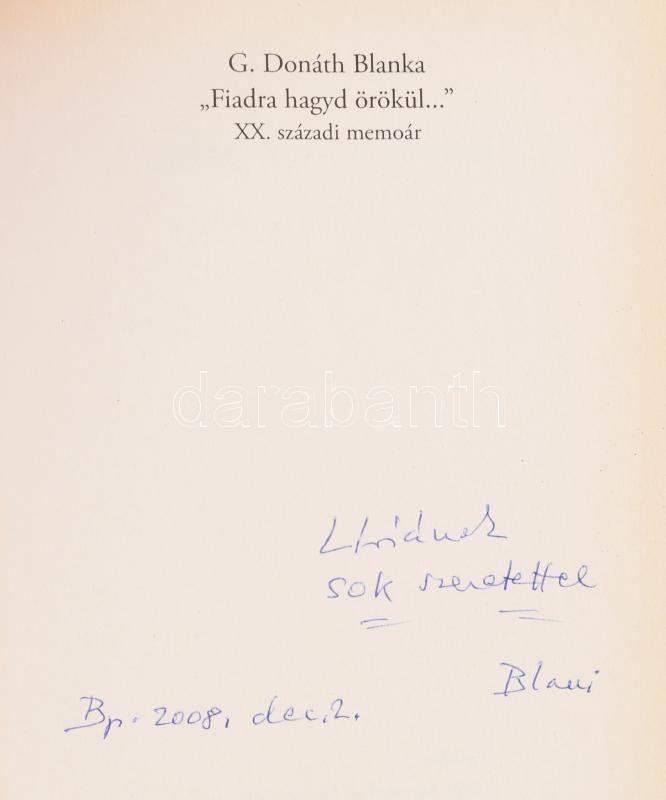 G. Donáth Blanka
„Fiadra hagyd örökül...”
XX. századi memoár
darabanth
Líviának
sok szeretettel
Blani
Bp. 2008. dec. 2.